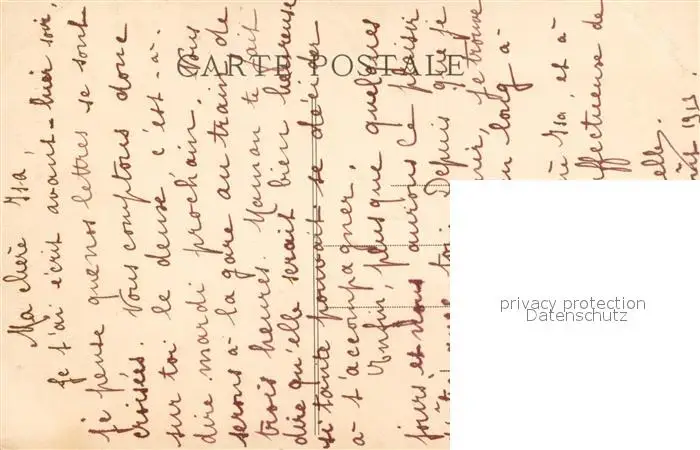 CARTE POSTALE
Ma chère Isa,
Je t'ai écrit avant-hier soir,
je pense que nos lettres se sont
croisées. Nous comptons donc
sur toi le deuse c'est-à-
dire mardi prochain. Nous
serons à la gare au train de
trois heures. Maman te fait
dire qu'elle serait bien heureuse
si tante pouvait se décider
à t'accompagner.
Enfin, plus que quelques
jours et nous aurions ce plaisir
toi. Depuis que je
je trouve
long à
Isa, et à
affectueuse de
elle.
1913
privacy protection
Datenschutz